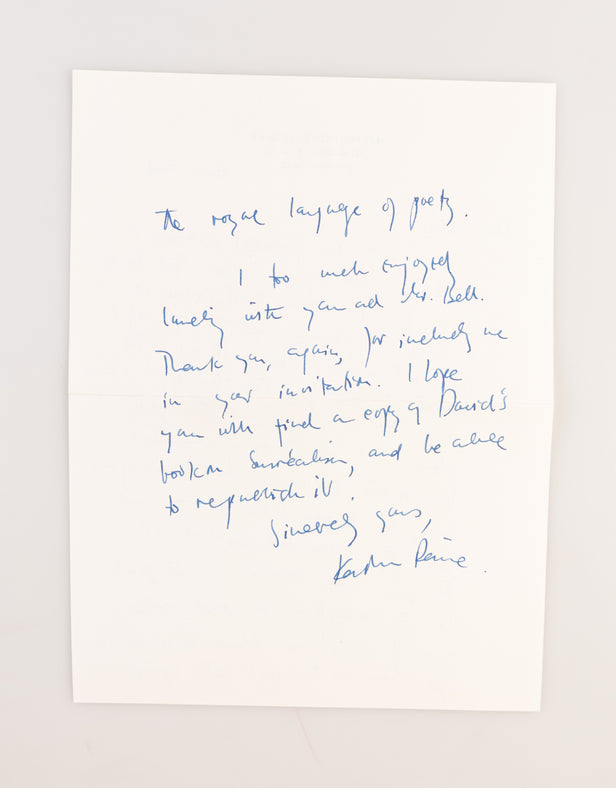 the royal language of poetry.
I too much enjoyed
lunching with you and Mr. Bell.
Thank you, again, for including me
in your invitation. I hope
you will find a copy of David's
book on Surréalism, and be able
to republish it.
Sincerely yours,
Kathleen Raine.